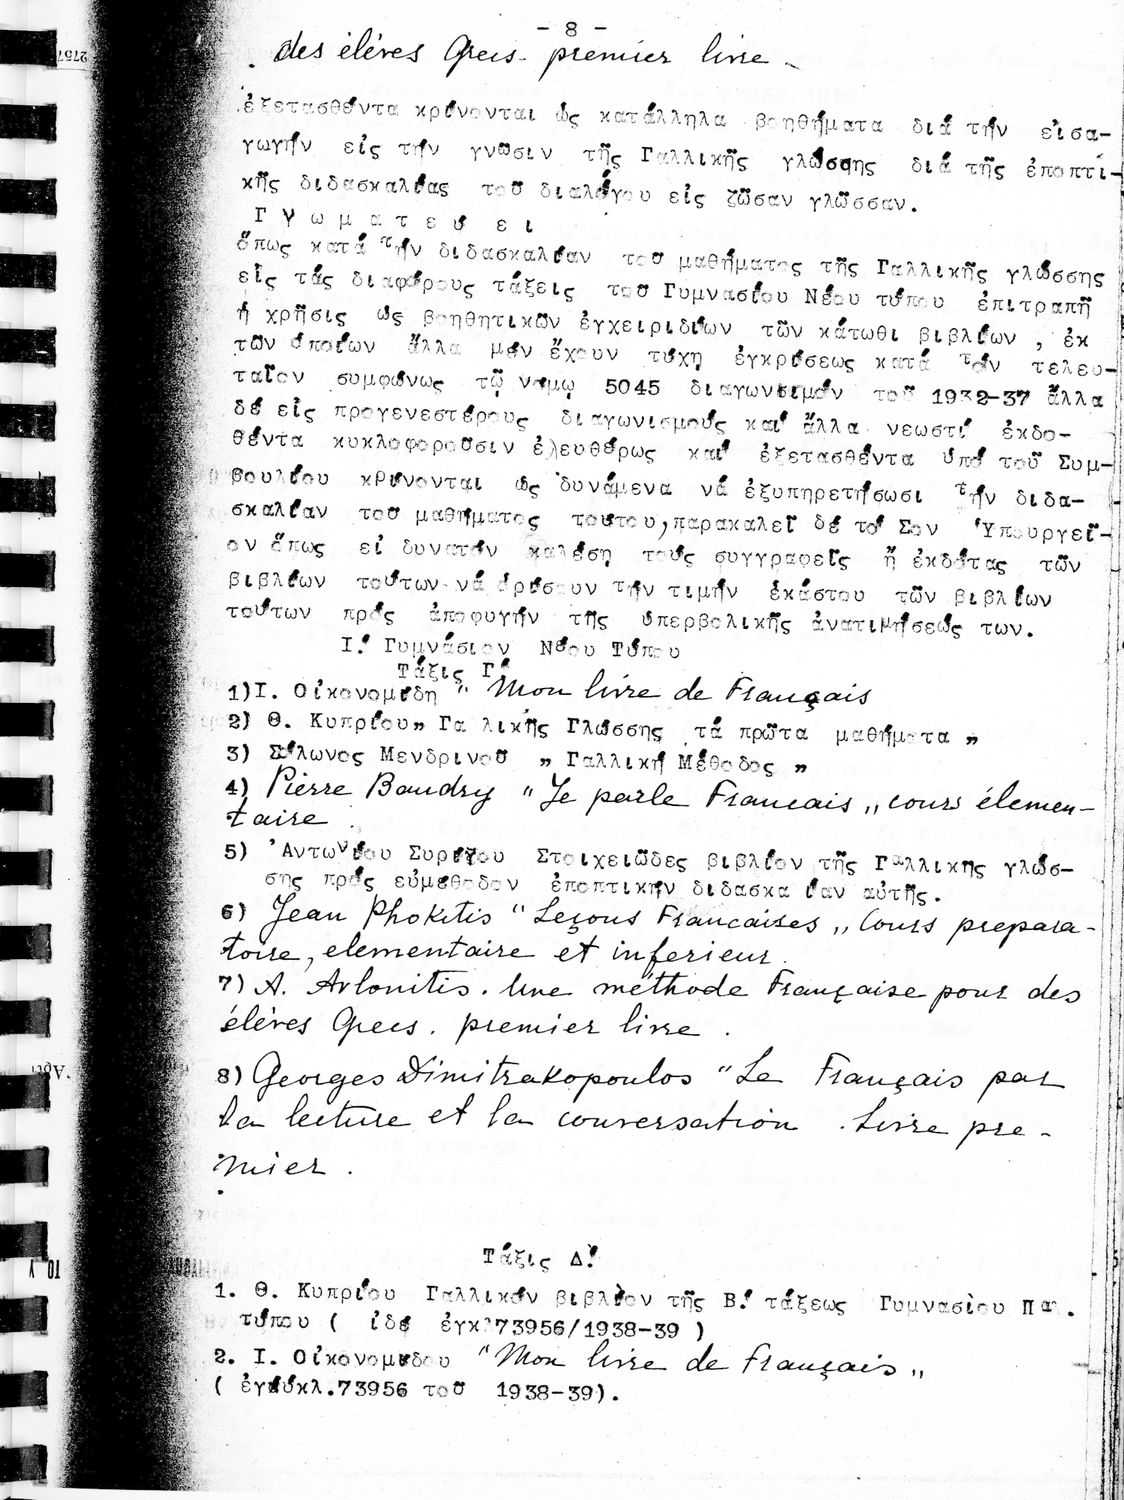 - 8 -
des élèves Grecs. premier livre.
ἐξετασθέντα κρίνονται ὡς κατάλληλα βοηθήματα διά τήν εἰσα-
γωγήν εἰς τήν γνῶσιν τῆς Γαλλικῆς γλώσσης διά τῆς ἐποπτι-
κῆς διδασκαλίας τοῦ διαλόγου εἰς ζῶσαν γλῶσσαν.
Γ ν ω μ α τ ε ύ ε ι
ὅπως κατά τήν διδασκαλίαν τοῦ μαθήματος τῆς Γαλλικῆς γλώσσης
εἰς τάς διαφόρους τάξεις τοῦ Γυμνασίου Νέου τύπου ἐπιτραπῆ
ἡ χρῆσις ὡς βοηθητικῶν ἐγχειριδίων τῶν κάτωθι βιβλίων , ἐκ
τῶν ὁποίων ἄλλα μέν ἔχουν τύχη ἐγκρίσεως κατά τόν τελευ-
ταῖον συμφώνως τῷ νόμῳ 5045 διαγωνισμόν τοῦ 1932-37 ἄλλα
δέ εἰς προγενεστέρους διαγωνισμούς καί ἄλλα νεωστί ἐκδο-
θέντα κυκλοφοροῦσιν ἐλευθέρως καί ἐξετασθέντα ὑπό τοῦ Συμ-
βουλίου κρίνονται ὡς δυνάμενα νά ἐξυπηρετήσωσι τήν διδα-
σκαλίαν τοῦ μαθήματος τούτου, παρακαλεῖ δέ τό Σον Ὑπουργεῖ-
ον ὅπως εἰ δυνατόν καλέση τούς συγγραφεῖς ἤ ἐκδότας τῶν
βιβλίων τούτων νά ὁρίσουν τήν τιμήν ἑκάστου τῶν βιβλίων
τούτων πρός ἀποφυγήν τῆς ὑπερβολικῆς ἀνατιμήσεώς των.
Ι.' Γυμνάσιον Νέου Τύπου
Τάξις Γ'
1)Ι. Οἰκονομίδη " Mon livre de Français
2) Θ. Κυπρίου" Γα λικῆς Γλώσσης τά πρῶτα μαθήματα "
3) Σόλωνος Μενδρινοῦ " Γαλλική Μέθοδος "
4) Pierre Baudry " Je parle Francais " cours élemen-
taire
5) 'Αντωνίου Συρίγου Στοιχειῶδες βιβλίον τῆς Γαλλικῆς γλώσ-
σης πρός εὐμέθοδον ἐποπτικήν διδασκα ίαν αὐτῆς.
6) Jean Phokitis " Leçons Francaises " Cours prepara-
toire, elementaire et inferieur.
7) A. Avlonitis. Une méthode Française pour des
élèves Grecs. premier livre .
8) Georges Dimitrakopoulos " Le Français par
la lecture et la conversation . Livre pre-
mier .
Τάξις Δ'
1. Θ. Κυπρίου Γαλλικόν βιβλίον τῆς Β.' τάξεως Γυμνασίου Παλ.
τύπου ( ἰδέ ἐγκ 73956/1938-39 )
2. Ι. Οἰκονομίδου " Mon livre de Français "
( ἐγκύκλ.73956 τοῦ 1938-39).